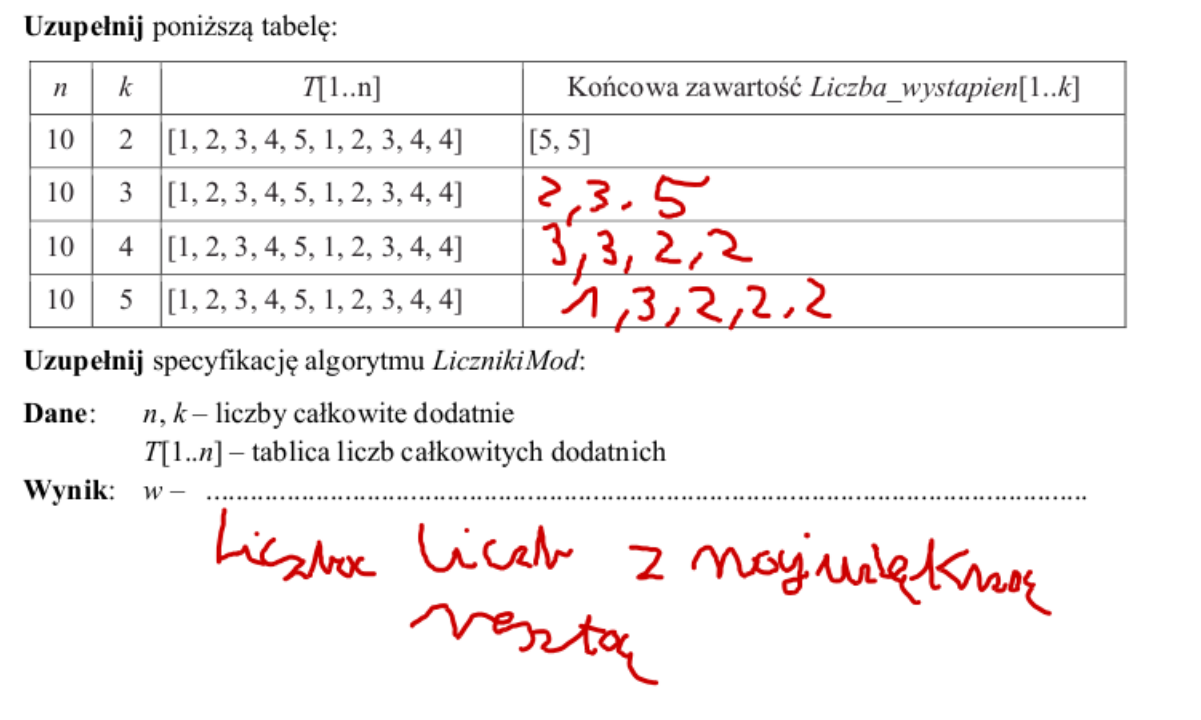 Uzupełnij poniższą tabelę:
n k T[1..n] Końcowa zawartość Liczba_wystapien[1..k]
10 2 [1, 2, 3, 4, 5, 1, 2, 3, 4, 4] [5, 5]
10 3 [1, 2, 3, 4, 5, 1, 2, 3, 4, 4] 2,3. 5
10 4 [1, 2, 3, 4, 5, 1, 2, 3, 4, 4] 3,3,2,2
10 5 [1, 2, 3, 4, 5, 1, 2, 3, 4, 4] 1,3,2,2,2
Uzupełnij specyfikację algorytmu LicznikiMod:
Dane: n, k – liczby całkowite dodatnie
T[1..n] – tablica liczb całkowitych dodatnich
Wynik: w – ........................................................................................................................
Liczba liczb z największą
resztą